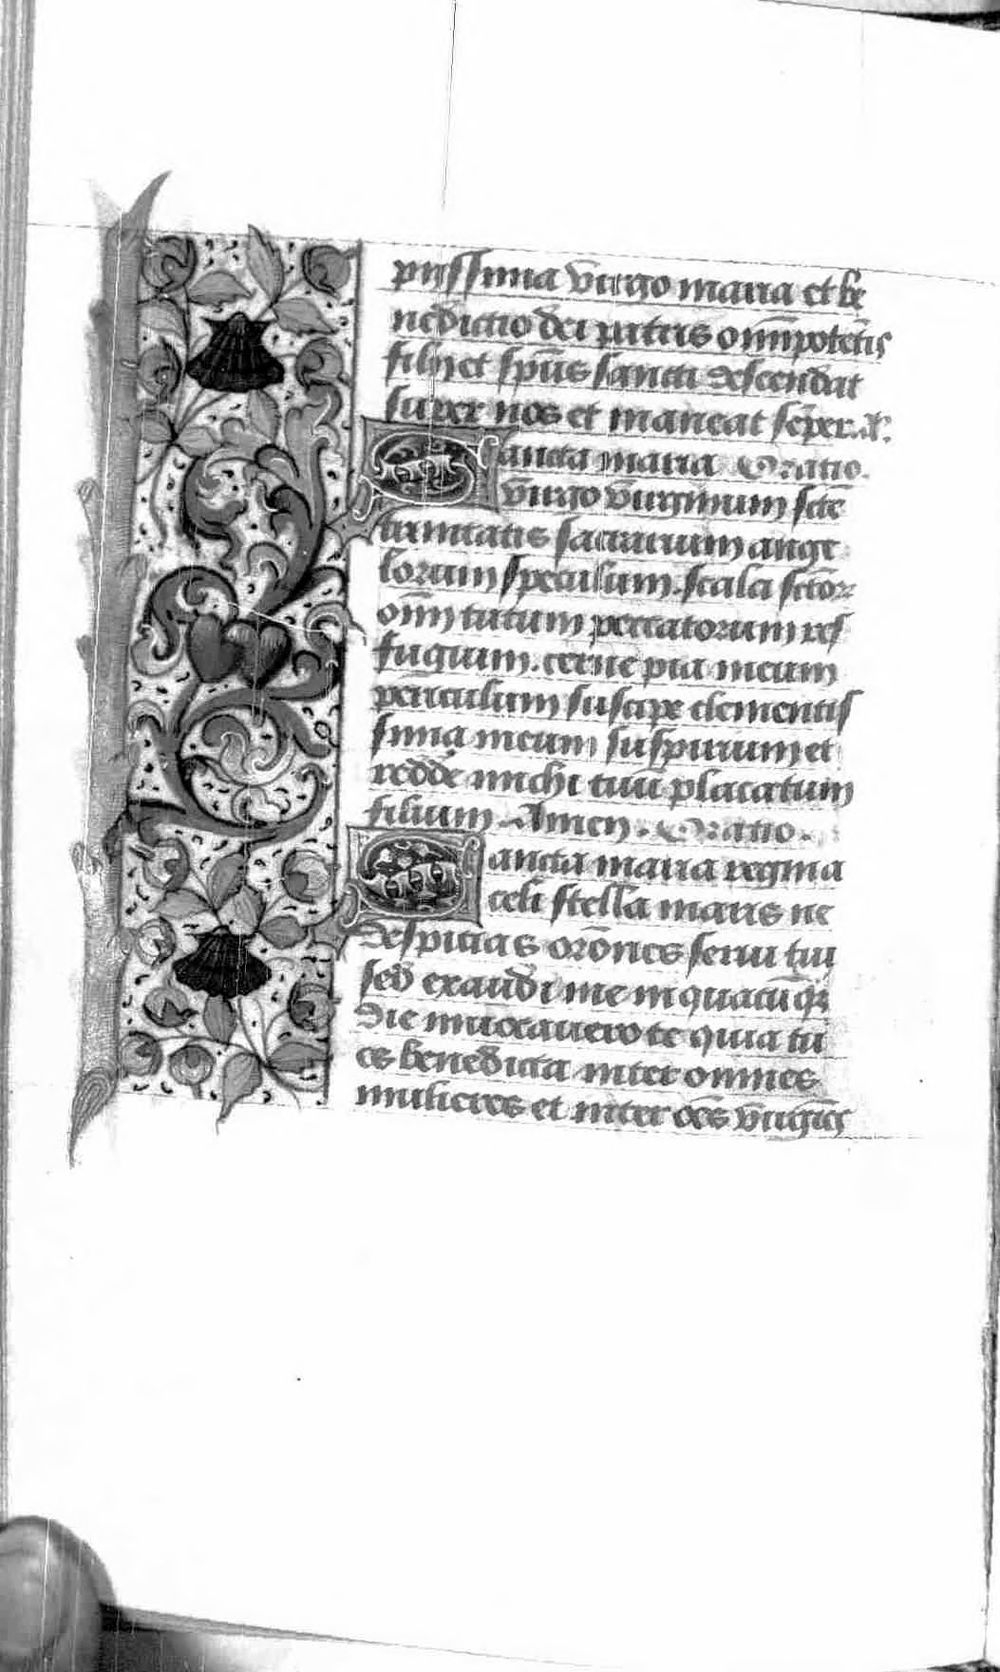 pijssima v̄irgo maria et be
nedictio dei patris om̄ipotētis
filij et sp̄us sancti descendat
super nos et maneat sēper. A.
Sancta maria Oratio.
v̄irgo v̄irginum scē
trinitatis sacrarium ange
lorum speculum. scala sctōr
om̄i tutum peccatorum ref
fugium. cerne pia meum
periculum suscipe clementis
sima meum suspirium et
redde michi tuū placatum
filium. Amen. Oratio.
Sancta maria regina
celi stella maris ne
despicias orōnes serui tui
sed exaudi me in quacūq
die inuocauero te quia tu
es benedicta inter omnes
mulieres et inter oēs v̄irgīes